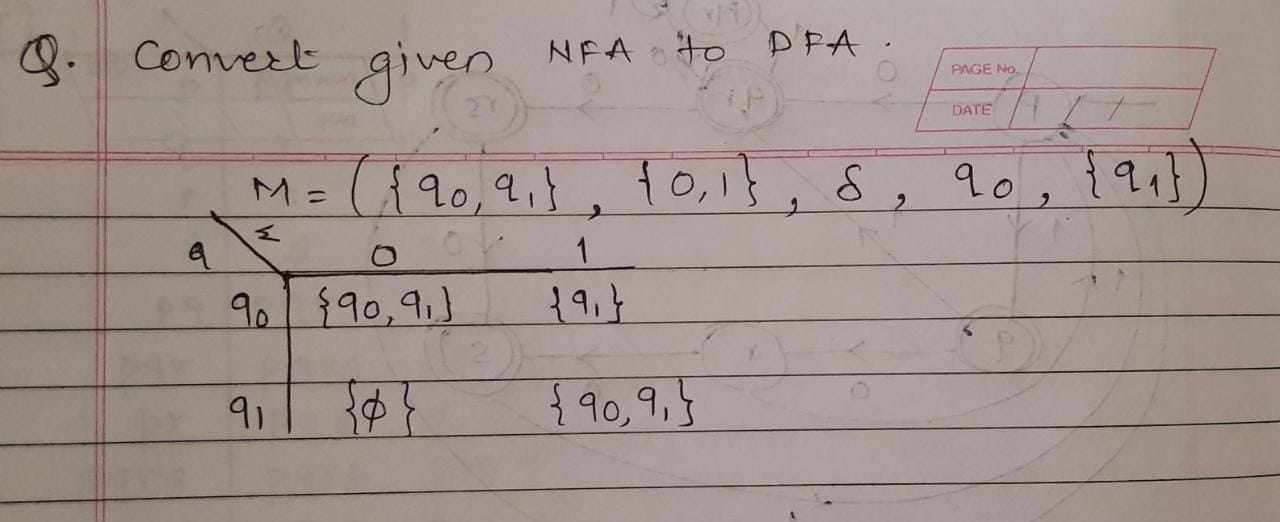 Q. Convert given NFA to DFA.
PAGE No.
DATE / /
M = ({q0, q1}, {0,1}, δ, q0, {q1})
q Σ 0 1
q0 {q0, q1} {q1}
q1 {ϕ} {q0, q1}